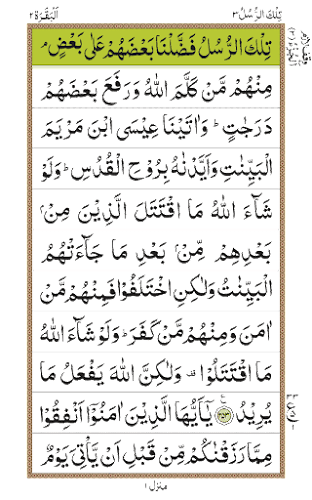 تِلْكَ الرُّسُلُ ٣ اَلْبَقَرَة ٢
تِلْكَ الرُّسُلُ فَضَّلْنَا بَعْضَهُمْ عَلٰى بَعْضٍ ۘ
مِنْهُمْ مَّنْ كَلَّمَ اللّٰهُ وَرَفَعَ بَعْضَهُمْ
دَرَجٰتٍ ؕ وَاٰتَيْنَا عِيْسَى ابْنَ مَرْيَمَ
الْبَيِّنٰتِ وَاَيَّدْنٰهُ بِرُوْحِ الْقُدُسِ ؕ وَلَوْ
شَآءَ اللّٰهُ مَا اقْتَتَلَ الَّذِيْنَ مِنْۢ
بَعْدِهِمْ مِّنْۢ بَعْدِ مَا جَآءَتْهُمُ
الْبَيِّنٰتُ وَلٰكِنِ اخْتَلَفُوْا فَمِنْهُمْ مَّنْ
اٰمَنَ وَمِنْهُمْ مَّنْ كَفَرَ ؕ وَلَوْ شَآءَ اللّٰهُ
مَا اقْتَتَلُوْا ۟ وَلٰكِنَّ اللّٰهَ يَفْعَلُ مَا
يُرِيْدُ ۝۲۵۳ يٰۤاَيُّهَا الَّذِيْنَ اٰمَنُوْۤا اَنْفِقُوْا
مِمَّا رَزَقْنٰكُمْ مِّنْ قَبْلِ اَنْ يَّاْتِيَ يَوْمٌ
منزل ١